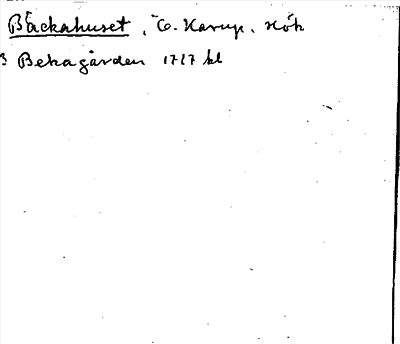 Bäckahuset, Ö. Karup, Hök
B Bekagården 1717 kl